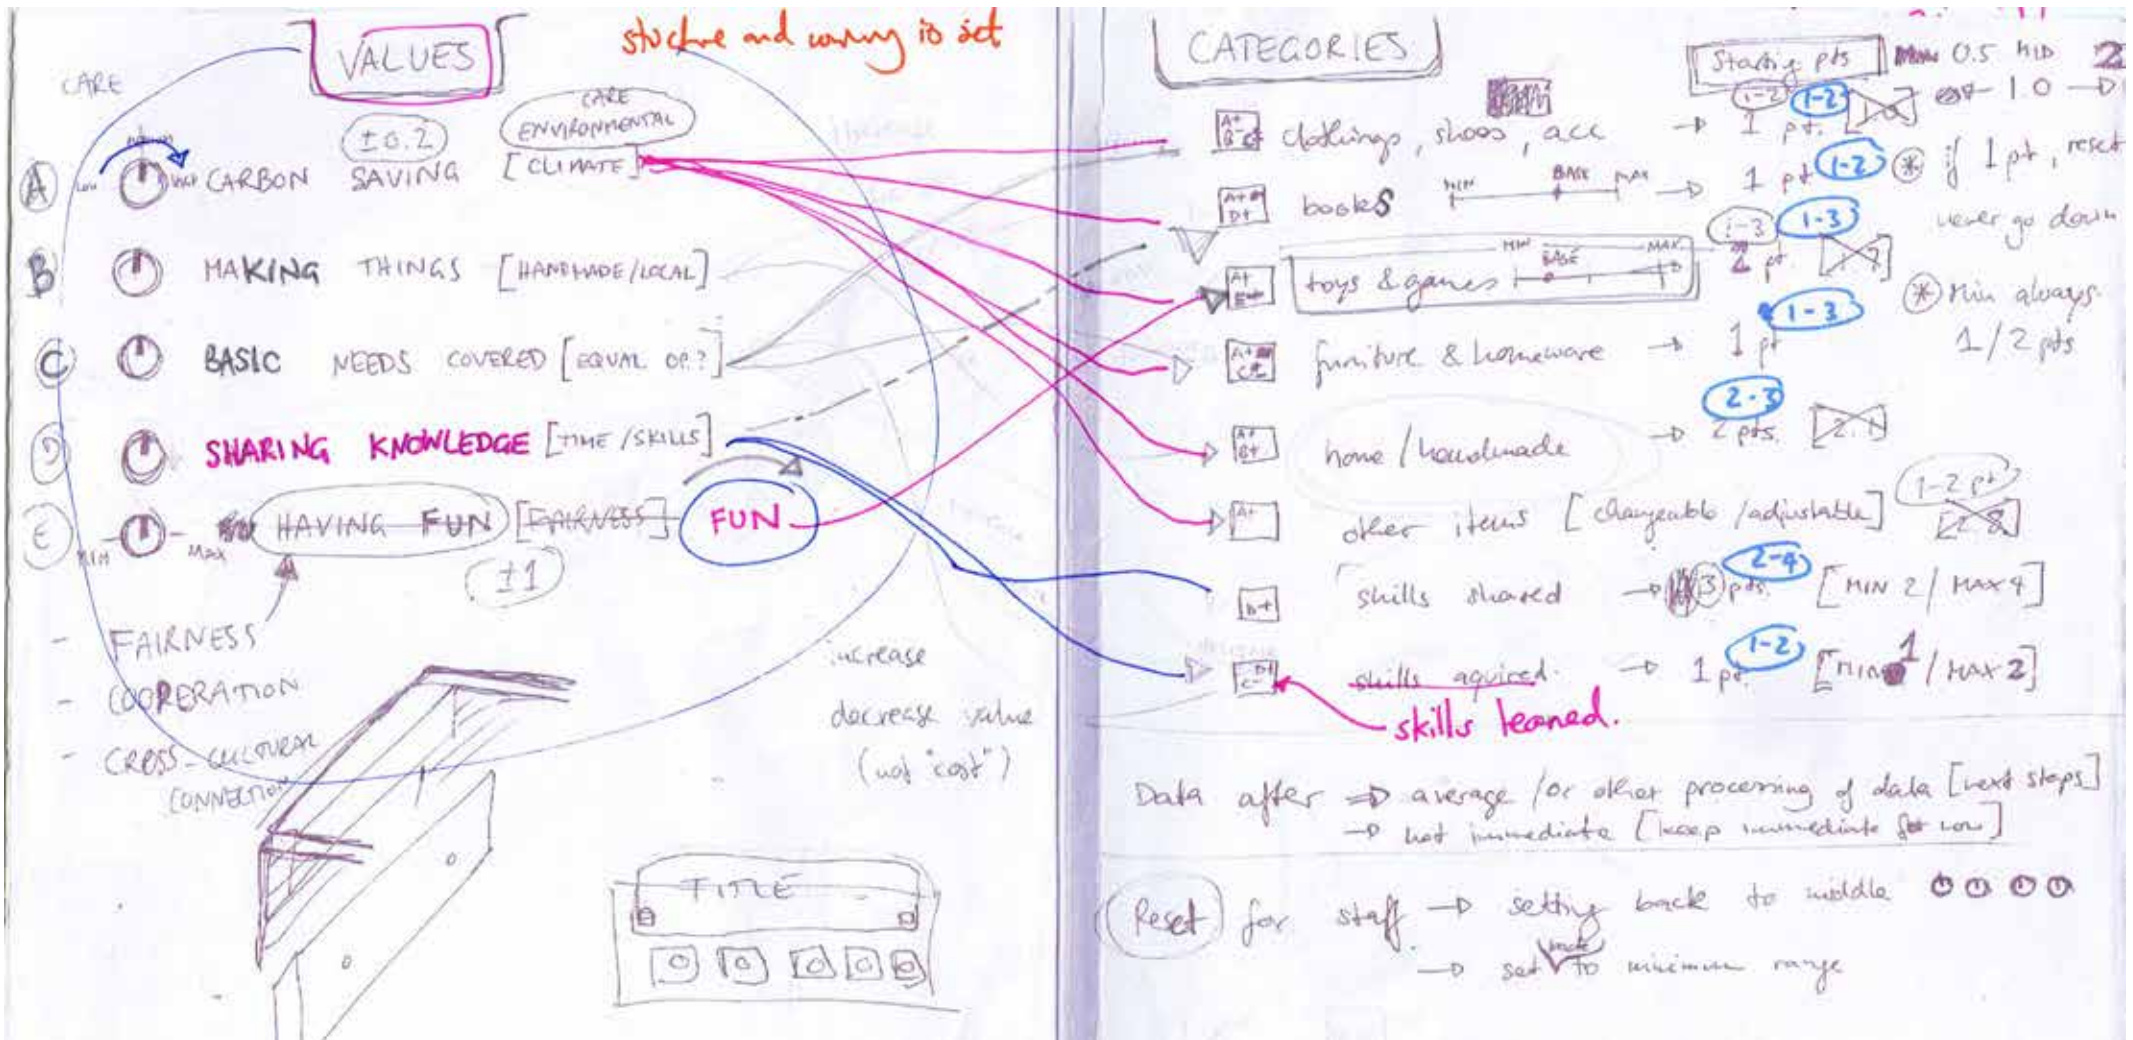 VALUES
CARE
±0.2
CARE
ENVIRONMENTAL
A
LOW
CARBON SAVING [CLIMATE]
B
MAKING THINGS [HANDMADE/LOCAL]
C
BASIC NEEDS COVERED [EQUAL OP.?]
D
SHARING KNOWLEDGE [TIME/SKILLS]
E
MIN
MAX
HAVING FUN [FAIRNESS] FUN
±1
- FAIRNESS
- COOPERATION
- CROSS-CULTURAL
CONNECTION
increase
decrease value
(not "cost")
TITLE
CATEGORIES
Starting pts
0.5 MID 2
1.0
A+
clothings, shoes, acc → 1 pt.
1-2
1-2
A+
D+
books MIN BASE MAX → 1 pt
1-2
* if 1pt, reset
never go down
A+
toys & games MIN BASE MAX 2 pt.
1-3
1-3
* Min always
1/2 pts
furniture & homeware → 1 pt
1-3
A+
B+
home / handmade → 2 pts.
2-3
A+
other items [changeable/adjustable]
1-2 pt
D+
skills shared → 3 pts. [MIN 2 / MAX 4]
2-4
skills aquired. → 1 pt. [MIN 1 / MAX 2]
1-2
skills learned.
Data after ⇒ average /or other processing of data [next steps]
→ not immediate [keep immediate for now]
Reset for staff → setting back to middle
→ set back to minimum range